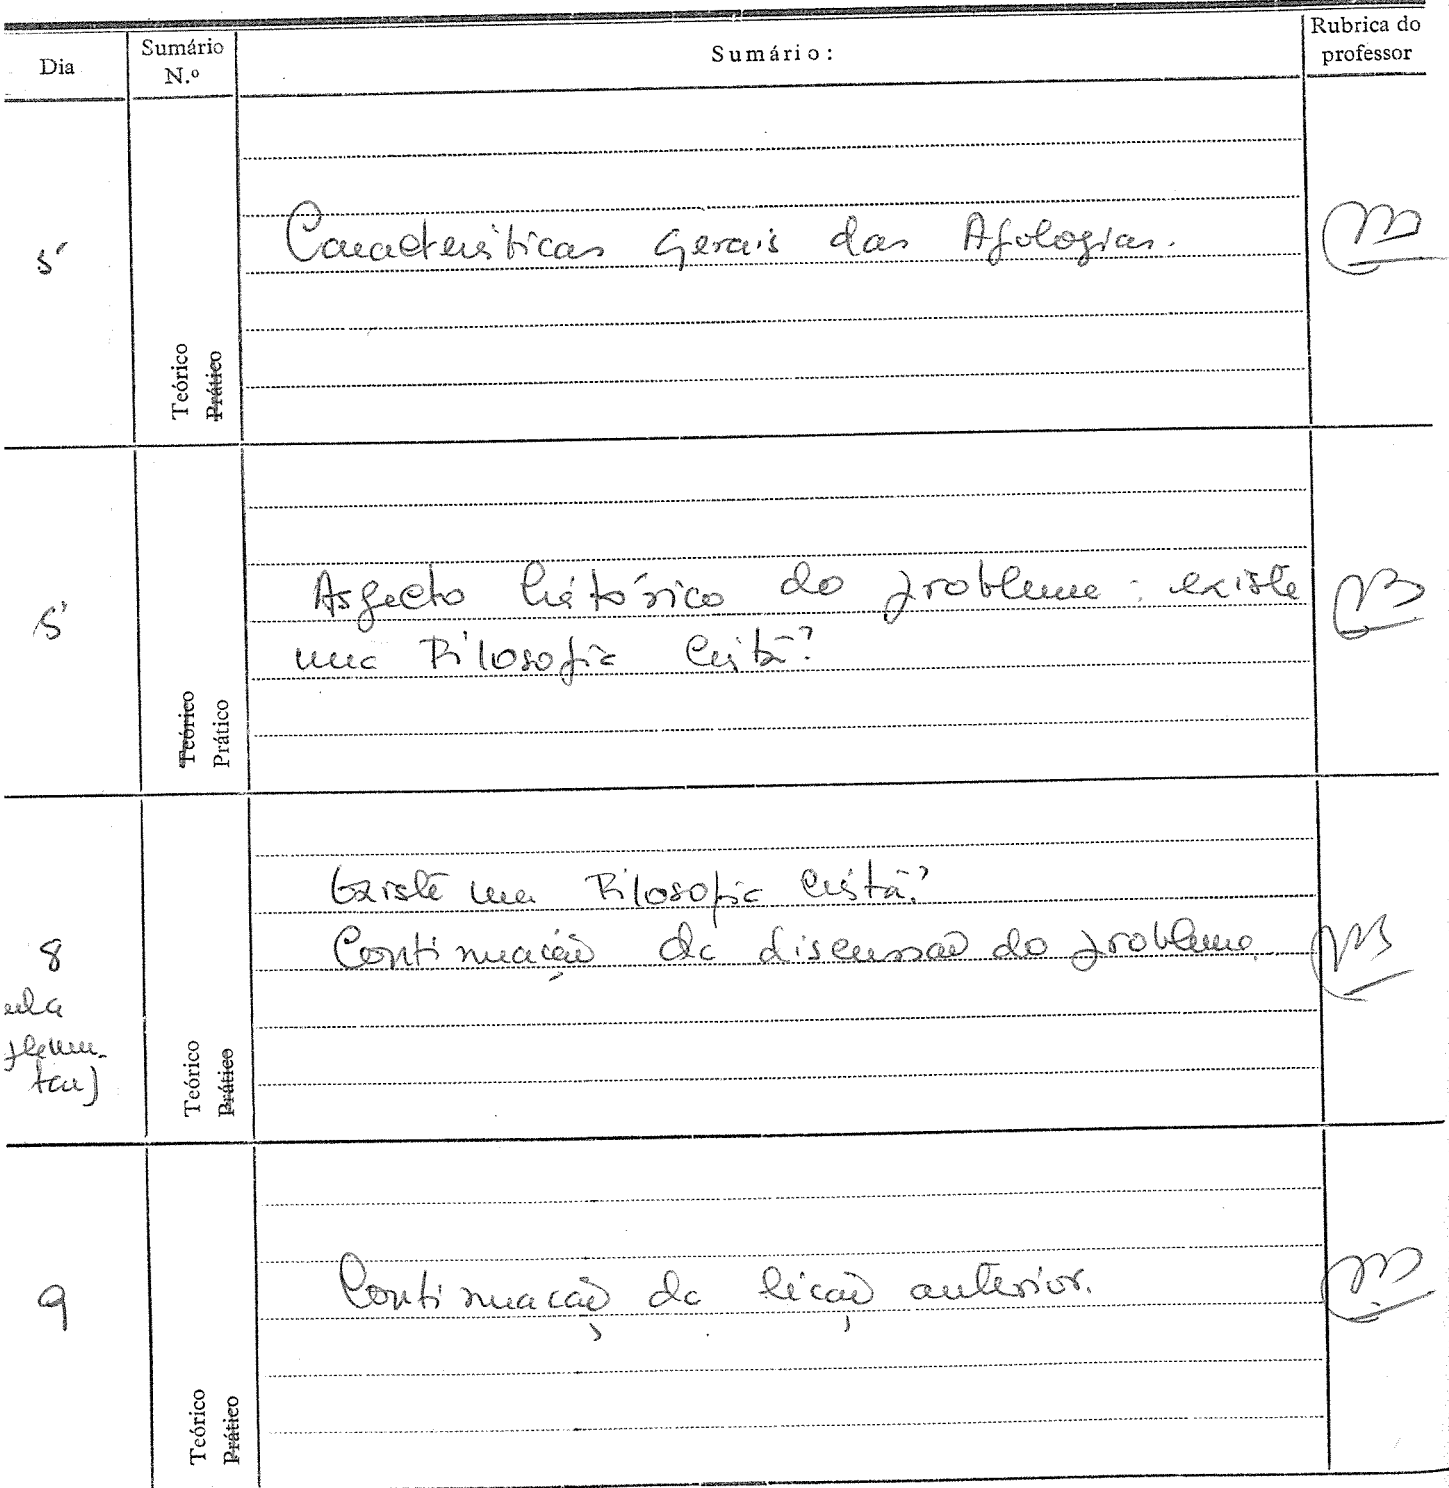 Dia
Sumário
N.º
Sumário:
Rubrica do
professor
5
Teórico
Prático
Características Gerais das Apologias.
5
Teórico
Prático
Aspecto histórico do problema: existe
uma Filosofia Cristã?
8
ula
plemen-
tar)
Teórico
Prático
Existe uma Filosofia Cristã?
Continuação da discussão do problema.
9
Teórico
Prático
Continuação da lição anterior.